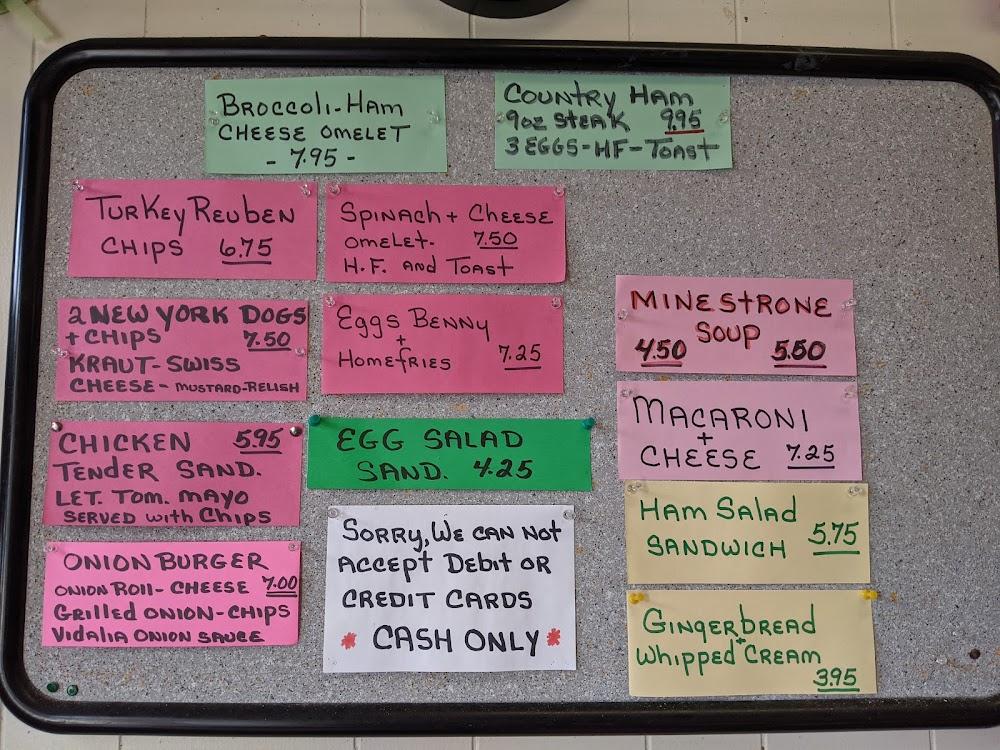 BROCCOLI-HAM
CHEESE OMELET
- 7.95 -
COUNTRY HAM
9oz STEAK 9.95
3 EGGS-HF-TOAST
TURKEY REUBEN
CHIPS 6.75
SPINACH + CHEESE
OMELET- 7.50
H.F. AND TOAST
2 NEW YORK DOGS
+ CHIPS 7.50
KRAUT-SWISS
CHEESE-MUSTARD-RELISH
Eggs BENNY
+
HOMEFRIES 7.25
MINESTRONE
SOUP
4.50 5.50
CHICKEN 5.95
TENDER SAND.
LET. TOM. MAYO
SERVED with Chips
EGG SALAD
SAND. 4.25
MACARONI
+
CHEESE 7.25
ONION BURGER
ONION ROll-CHEESE 7.00
GRilled ONION-CHIPS
VIdAlIA ONION SAUCE
SORRY, WE CAN NOT
ACCEPT DEBIT OR
CREDIT CARDS
* CASH ONLY *
HAM SALAD
SANDWICH 5.75
GINGERBREAD
+
Whipped CREAM
3.95